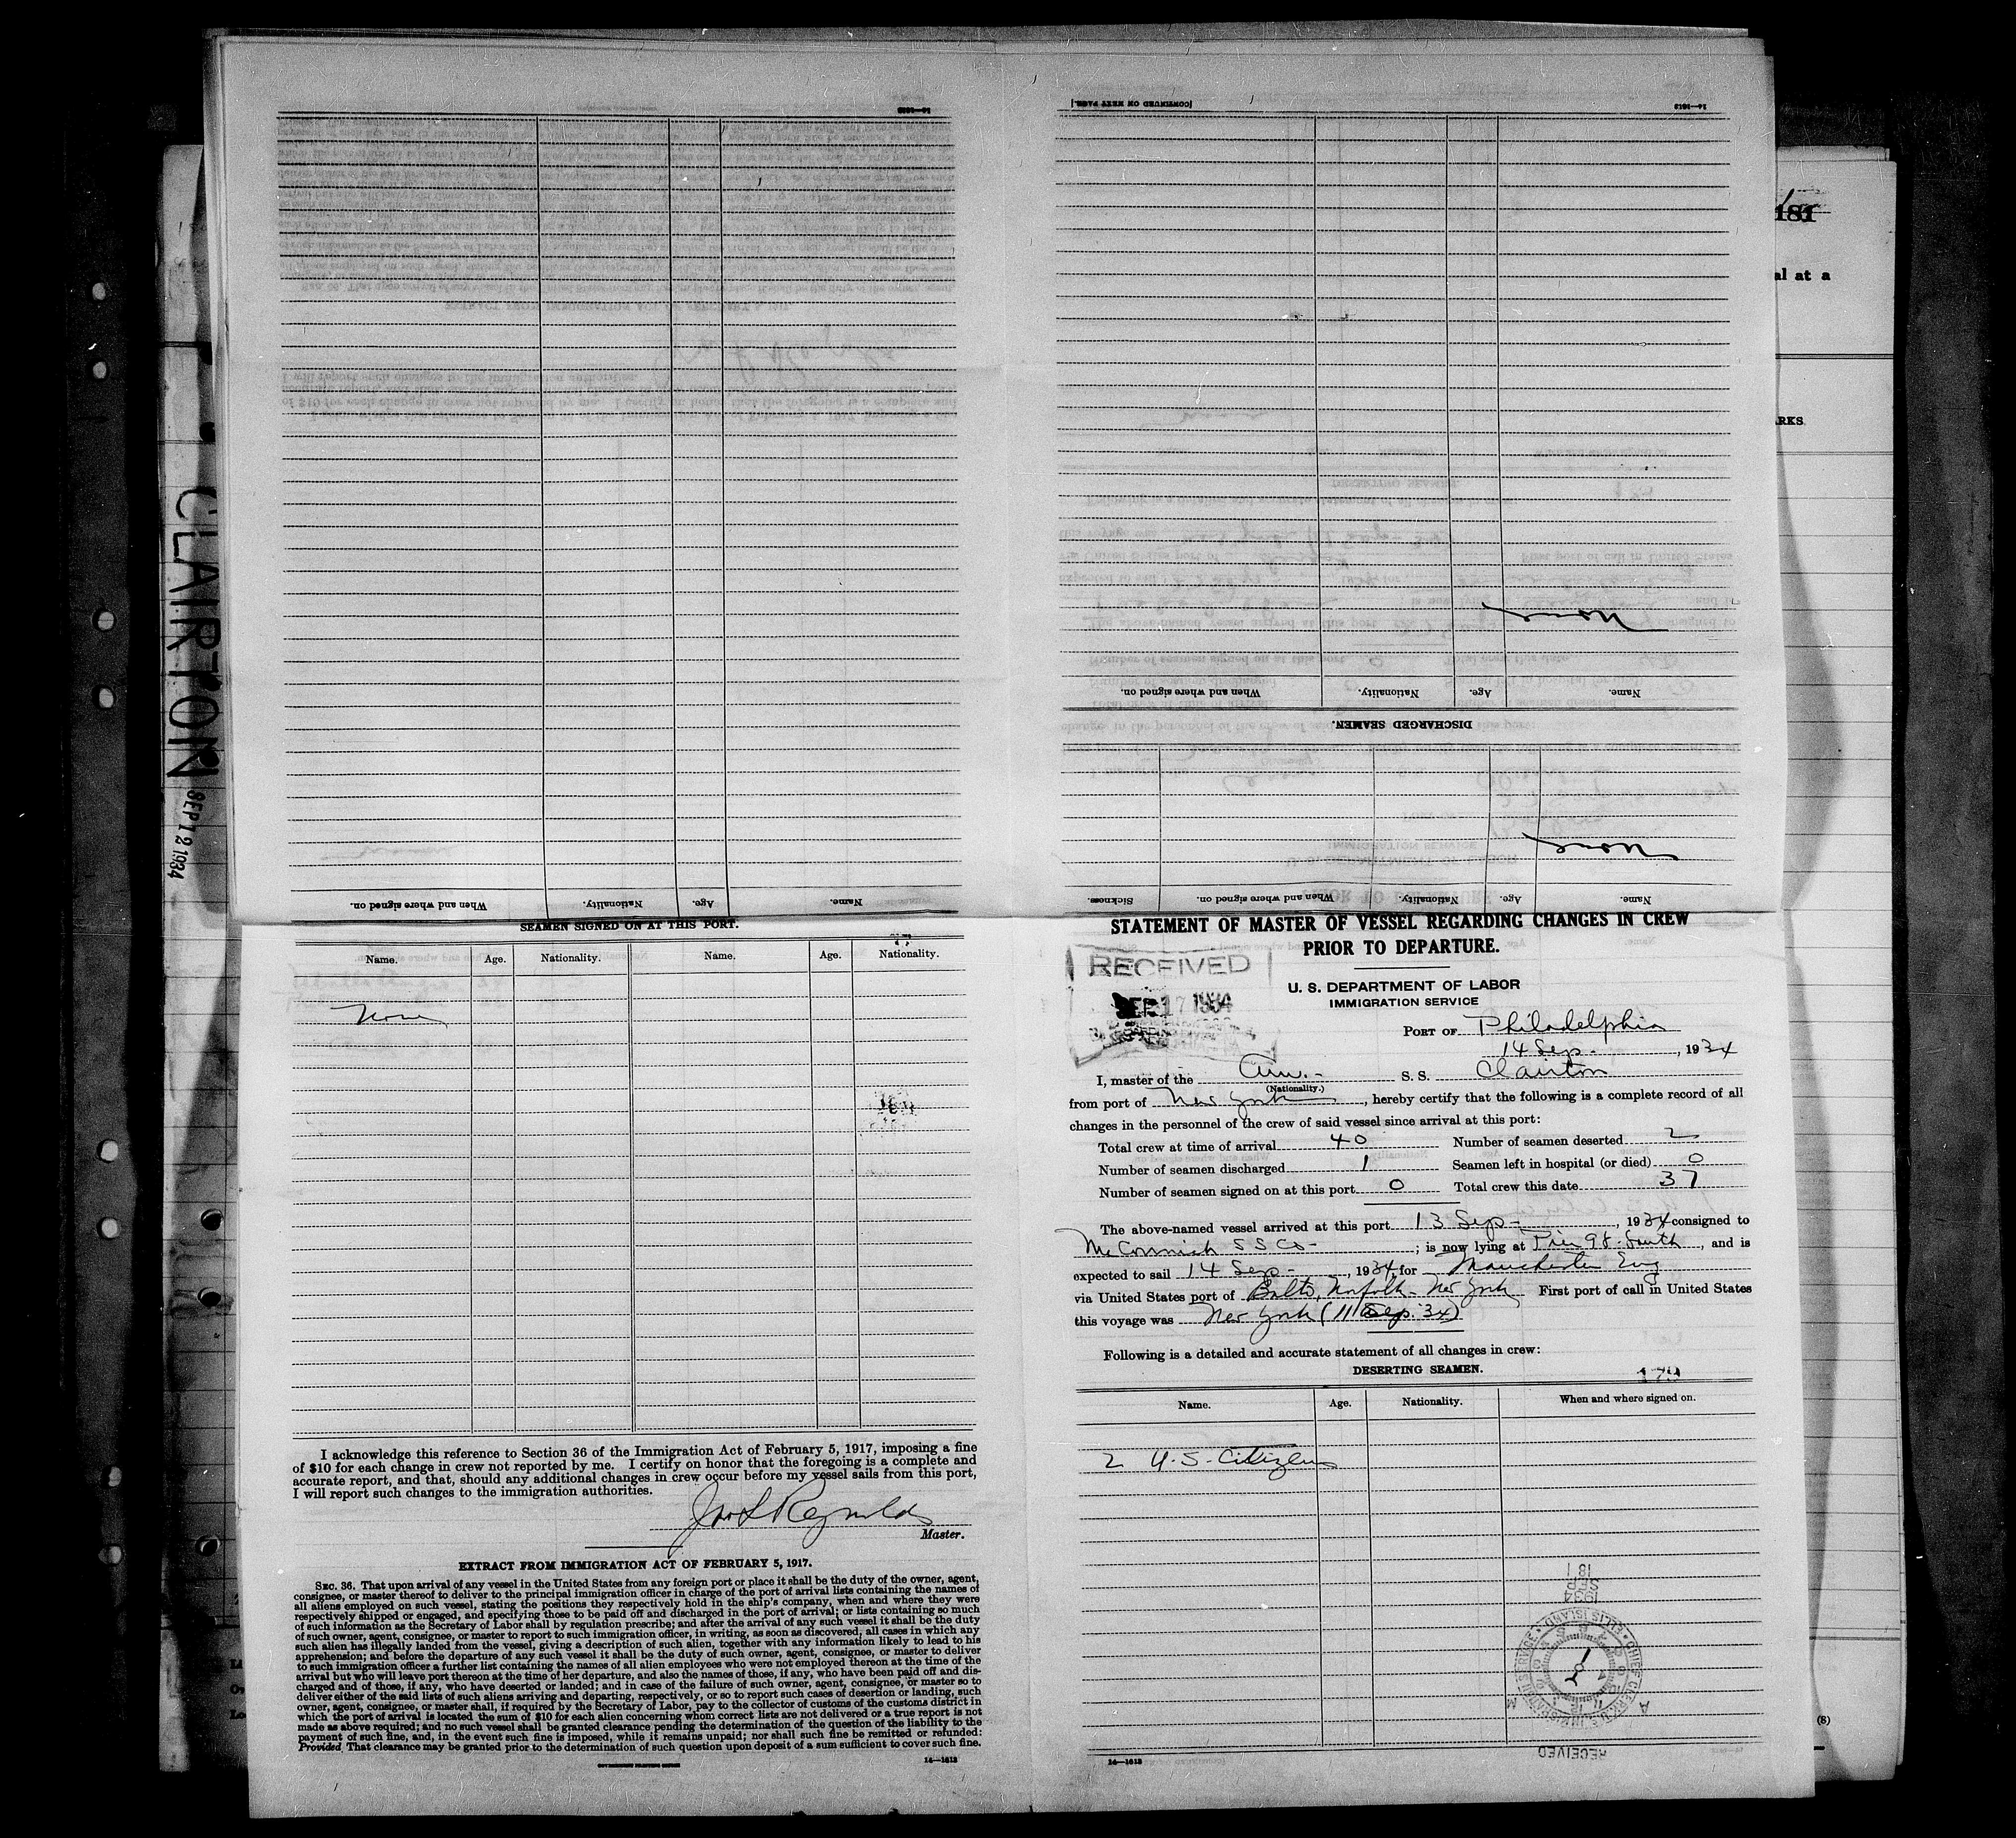 CLAIRTON
SEP 12 1934
181
al at a
RKS.
(8)
14—1613
[CONTINUED ON NEXT PAGE.]
14—1613
None
Name.
Age.
Nationality.
When and where signed on.
DISCHARGED SEAMEN.
None
Name.
Age.
Nationality.
When and where signed on.
Sickness.
Name.
Age.
Nationality.
When and where signed on.
SEAMEN SIGNED ON AT THIS PORT.
Name. Age. Nationality. Name. Age. Nationality.
None
I acknowledge this reference to Section 36 of the Immigration Act of February 5, 1917, imposing a fine
of $10 for each change in crew not reported by me. I certify on honor that the foregoing is a complete and
accurate report, and that, should any additional changes in crew occur before my vessel sails from this port,
I will report such changes to the immigration authorities.
Jno L Reynolds
Master.
EXTRACT FROM IMMIGRATION ACT OF FEBRUARY 5, 1917.
SEC. 36. That upon arrival of any vessel in the United States from any foreign port or place it shall be the duty of the owner, agent,
consignee, or master thereof to deliver to the principal immigration officer in charge of the port of arrival lists containing the names of
all aliens employed on such vessel, stating the positions they respectively hold in the ship's company, when and where they were
respectively shipped or engaged, and specifying those to be paid off and discharged in the port of arrival; or lists containing so much
of such information as the Secretary of Labor shall by regulation prescribe; and after the arrival of any such vessel it shall be the duty
of such owner, agent, consignee, or master to report to such immigration officer, in writing, as soon as discovered, all cases in which any
such alien has illegally landed from the vessel, giving a description of such alien, together with any information likely to lead to his
apprehension; and before the departure of any such vessel it shall be the duty of such owner, agent, consignee, or master to deliver
to such immigration officer a further list containing the names of all alien employees who were not employed thereon at the time of the
arrival but who will leave port thereon at the time of her departure, and also the names of those, if any, who have been paid off and dis-
charged and of those, if any, who have deserted or landed; and in case of the failure of such owner, agent, consignee, or master so to
deliver either of the said lists of such aliens arriving and departing, respectively, or so to report such cases of desertion or landing, such
owner, agent, consignee, or master shall, if required by the Secretary of Labor, pay to the collector of customs of the customs district in
which the port of arrival is located the sum of $10 for each alien concerning whom correct lists are not delivered or a true report is not
made as above required; and no such vessel shall be granted clearance pending the determination of the question of the liability to the
payment of such fine, and, in the event such fine is imposed, while it remains unpaid; nor shall such fine be remitted or refunded:
Provided, That clearance may be granted prior to the determination of such question upon deposit of a sum sufficient to cover such fine.
GOVERNMENT PRINTING OFFICE 14—1613
STATEMENT OF MASTER OF VESSEL REGARDING CHANGES IN CREW
PRIOR TO DEPARTURE.
RECEIVED
SEP 17 1934
U. S. DEPARTMENT OF LABOR
IMMIGRATION SERVICE
PORT OF Philadelphia
14 Sep. , 1934
I, master of the Am. S. S. Clairton
(Nationality.)
from port of New York , hereby certify that the following is a complete record of all
changes in the personnel of the crew of said vessel since arrival at this port:
Total crew at time of arrival 40 Number of seamen deserted 2
Number of seamen discharged 1 Seamen left in hospital (or died) 0
Number of seamen signed on at this port 0 Total crew this date 37
The above-named vessel arrived at this port 13 Sep , 1934 consigned to
McCormick S S Co ; is now lying at Pier 98 - South , and is
expected to sail 14 Sep , 1934, for Manchester Eng
via United States port of Balto, Norfolk - New York First port of call in United States
this voyage was New York (11 Sep. 34)
Following is a detailed and accurate statement of all changes in crew:
DESERTING SEAMEN.
Name. Age. Nationality. When and where signed on.
2 U.S. Citizens
1934
SEP
181
RECEIVED
14—1613